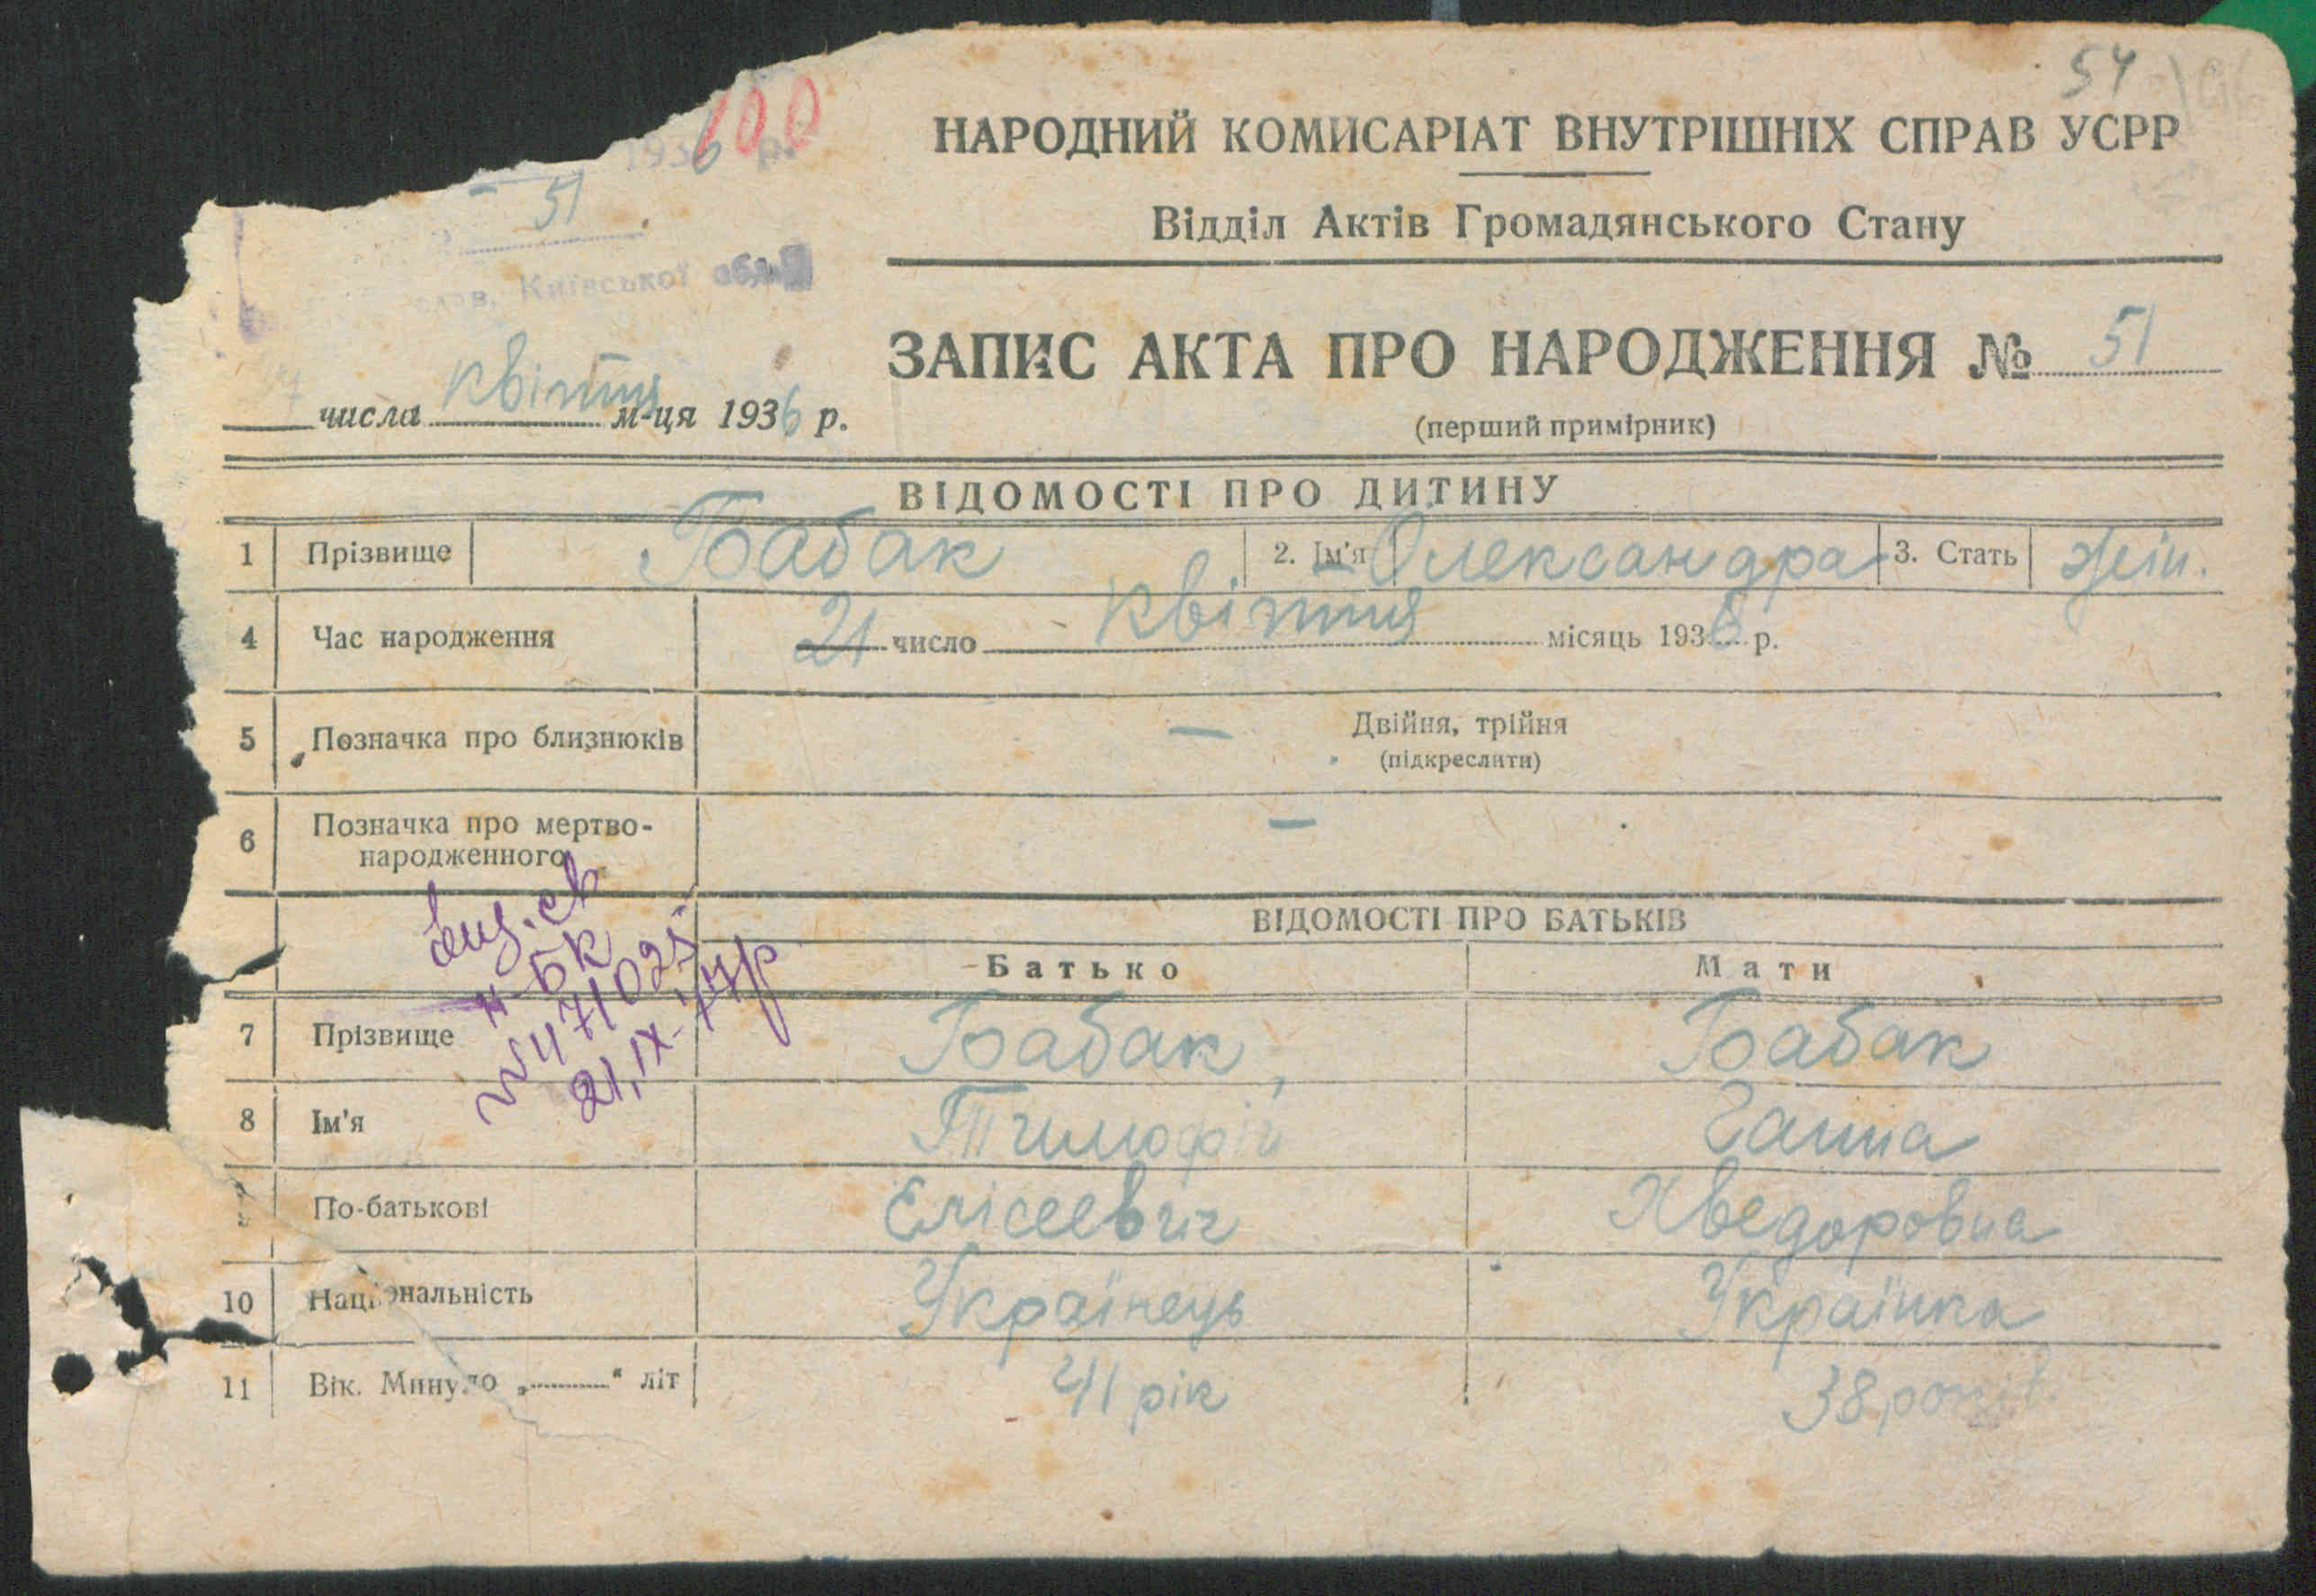 54
100
1936 р.
51
Київської обл.
НАРОДНИЙ КОМИСАРІАТ ВНУТРІШНІХ СПРАВ УСРР
Відділ Актів Громадянського Стану
ЗАПИС АКТА ПРО НАРОДЖЕННЯ № 51
(перший примірник)
числа квітня м-ця 1936 р.
ВІДОМОСТІ ПРО ДИТИНУ
1 Прізвище Бабак 2. Ім'я Олександра 3. Стать жін.
4 Час народження 21 число квітня місяць 1936 р.
5 Позначка про близнюків — Двійня, трійня
(підкреслити)
6 Позначка про мертво-
народженного —
вид. св
н-БК
№471025
21.IX-74р
ВІДОМОСТІ ПРО БАТЬКІВ
Батько Мати
7 Прізвище Бабак, Бабак
8 Ім'я Тимофій Ганна
По-батькові Елісеевич Хведоровна
10 Національність Українець Українка
11 Вік. Минуло „ “ літ 41 рік 38 років